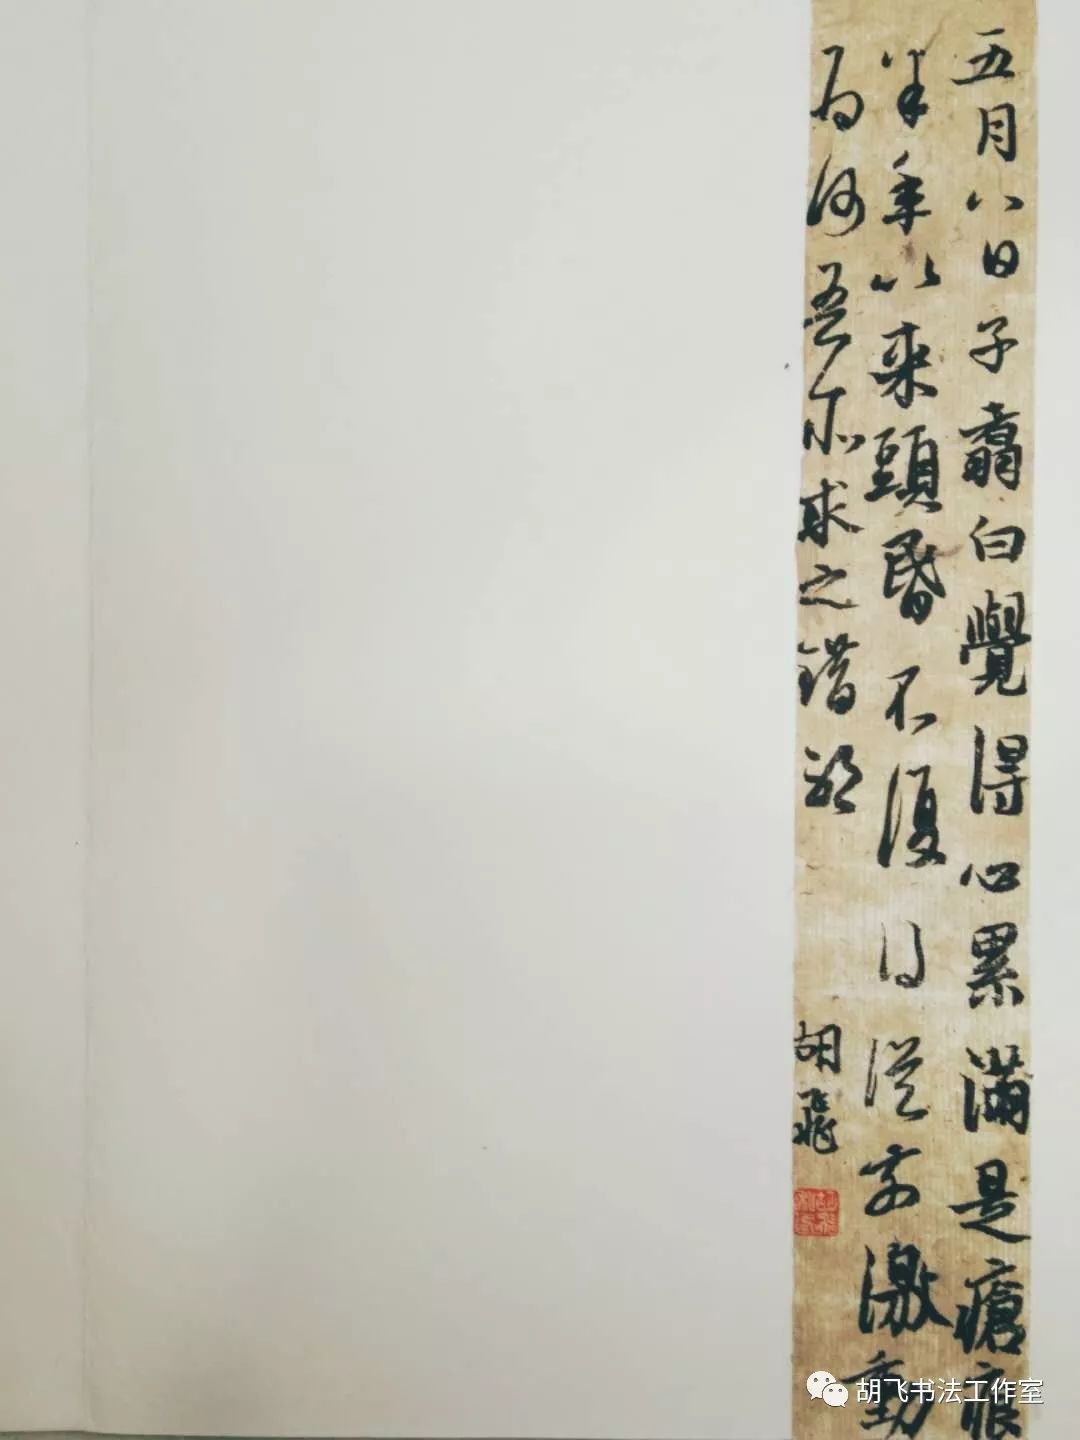 五月八日子翥白覺得心累滿是瘡痕
半年以來頭昏不復得從前激動
為何吾亦求之錯耶
胡飛
胡飞书法工作室